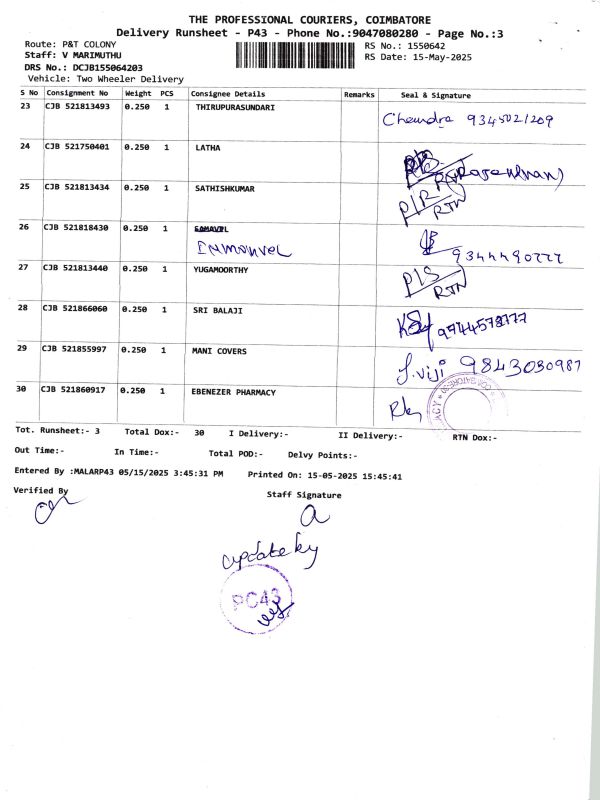 THE PROFESSIONAL COURIERS, COIMBATORE
Delivery Runsheet - P43 - Phone No.:9047080280 - Page No.:3
Route: P&T COLONY
RS No.: 1550642
Staff: V MARIMUTHU
RS Date: 15-May-2025
DRS No.: DCJB155064203
Vehicle: Two Wheeler Delivery
S No Consignment No Weight PCS Consignee Details Remarks Seal & Signature
23 CJB 521813493 0.250 1 THIRUPURASUNDARI
Chandra 9345021209
24 CJB 521750401 0.250 1 LATHA
25 CJB 521813434 0.250 1 SATHISHKUMAR
RTN
26 CJB 521818430 0.250 1
Immanvel
27 CJB 521813440 0.250 1 YUGAMOORTHY
P/S
RTN
28 CJB 521866060 0.250 1 SRI BALAJI
29 CJB 521855997 0.250 1 MANI COVERS
J.viji 9843030987
30 CJB 521860917 0.250 1 EBENEZER PHARMACY
Tot. Runsheet:- 3 Total Dox:- 30 I Delivery:- II Delivery:- RTN Dox:-
Out Time:- In Time:- Total POD:- Delvy Points:-
Entered By :MALARP43 05/15/2025 3:45:31 PM Printed On: 15-05-2025 15:45:41
Verified By Staff Signature
update by
PC43